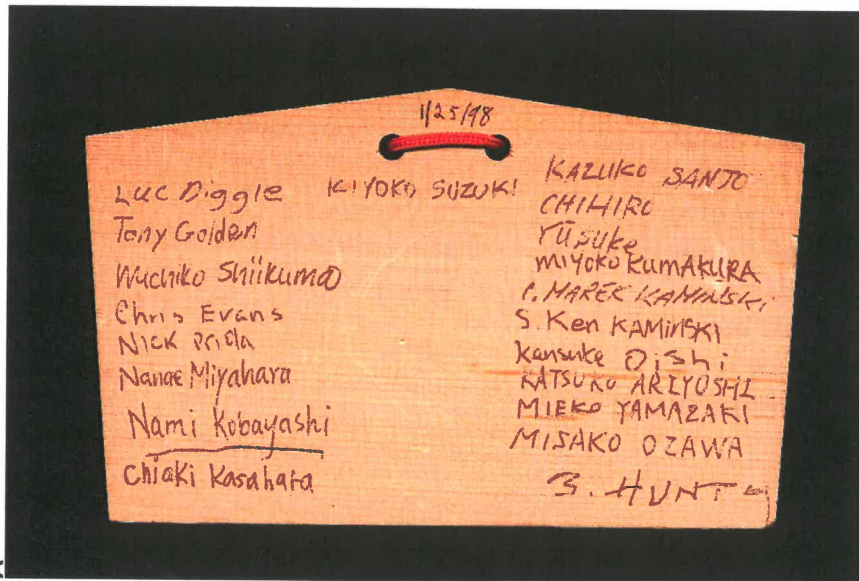 1/25/98
Luc Diggle
Tony Golden
Shiikuma
Chris Evans
Nick
Nanae Miyahara
Nami Kobayashi
Chiaki Kasahara
KIYOKO SUZUKI
KAZUKO SANJO
CHIHIRO
YŪSUKE
MIYOKO KUMAKURA
MAREK KAMINSKI
S. Ken KAMINSKI
Kensuke Oishi
KATSUKO ARIYOSHI
MIEKO YAMAZAKI
MISAKO OZAWA
B. HUNT